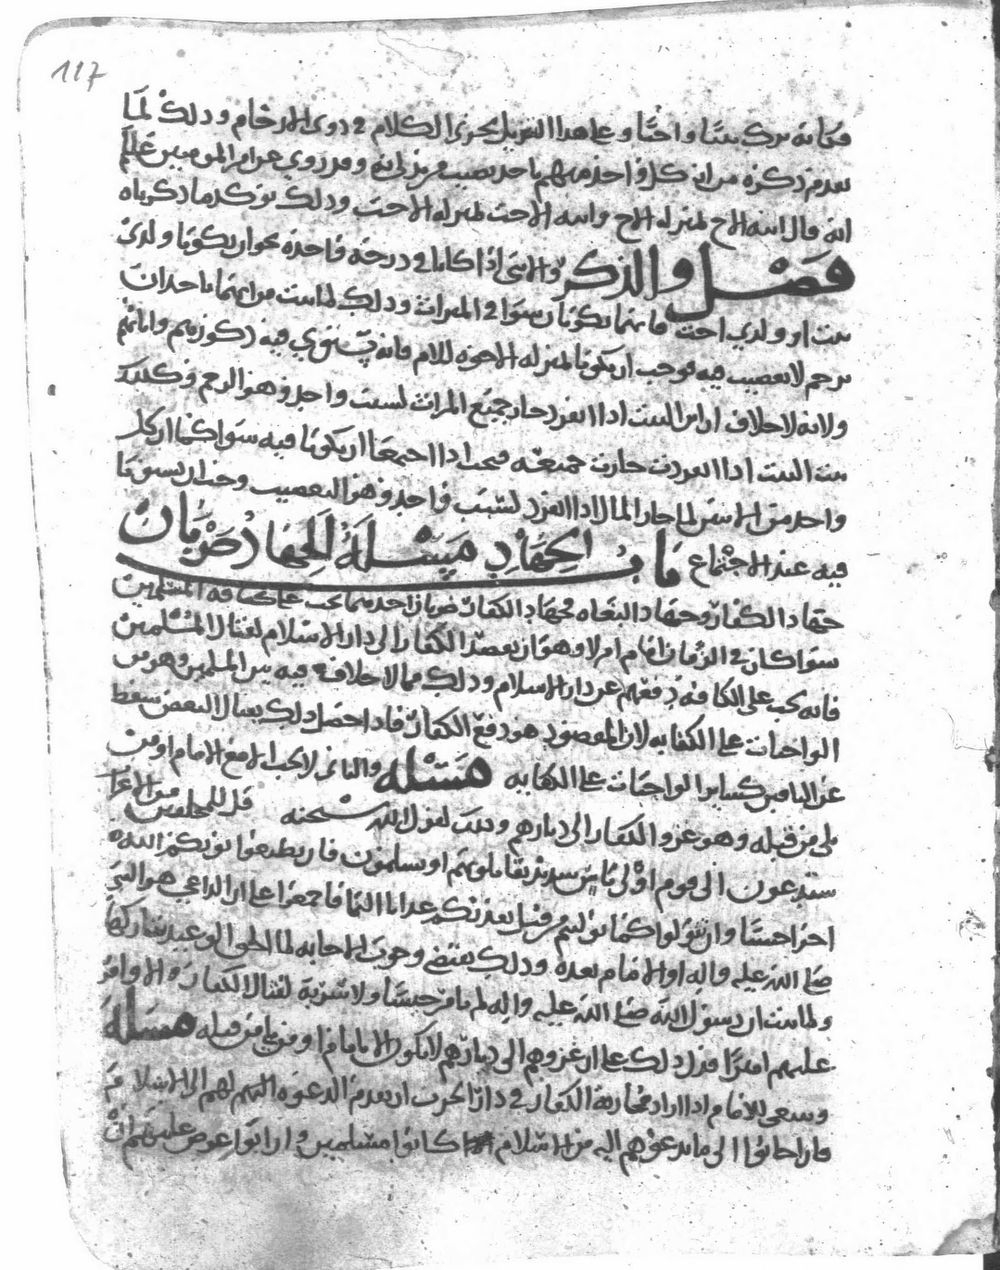 117
فكانه ترك بنتا واختا وعلى هذا التنزيل يجري الكلام في ذوي الارحام وذلك لما
تقدم ذكره من ان كل واحد منهم ياخذ نصيب من يدلي به وقد روي عن امير المومنين علي عليلم
انه قال ابنه الاخ بمنزله الاخ وابنه الاخت بمنزله الاخت وذلك يوكد ما ذكرناه
فصل والذكر والانثى اذا كانا في درجه واحده نحو ان يكونا ولدي
بنت او ولدي اخت فانهما يكونان سوا في الميراث وذلك لما بينت من انهما ياخذان
برحم لا تعصيب فيه فوجب ان يكونا بمنزله الاخوه للام فانه يستوي فيه ذكورهم واناثهم
ولانه لا خلاف ان ابن البنت اذا انفرد حاز جميع الميراث لسبب واحد وهو الرحم وكذلك
بنت البنت اذا انفردت حازت جميعه فيجب اذا اجتمعا ان يكونا فيه سوا كما ان كل
واحد من الابنين لما حاز المال اذا انفرد لسبب واحد وهو التعصيب وجب ان يستويا
فيه عند الاجتماع باب الجهاد مسئله الجهاد ضربان
جهاد الكفار وجهاد البغاه فجهاد الكفار ضربان احدهما يجب على كافه المسلمين
سوا كان في الزمان امام ام لا وهو ان يقصد الكفار الى دار الاسلام لقتال المسلمين
فانه يجب على الكافه دفعهم عن دار الاسلام وذلك مما لا خلاف فيه بين المسلمين وهو من
الواجبات على الكفايه لان المقصود هو دفع الكفار فاذا حصل ذلك بقتال البعض سقط
عن الباقين كساير الواجبات على الكفايه مسئله والثاني لا يجب الا مع الامام او من
يلي من قبله وهو غزو الكفار الى ديارهم وذلك لقول الله سبحنه قل للمخلفين من الاعراب
ستدعون الى قوم اولي باس شديد تقاتلونهم او يسلمون فان تطيعوا يوتكم الله
اجرا حسنا وان تتولوا كما توليتم من قبل يعذبكم عذابا اليما فاجمعوا على ان الداعي هو النبي
صلى الله عليه واله او الامام بعده وذلك يقتضي وجوب الاجابه
ولما بينت ان رسول الله صلى الله عليه واله لم يامر جيشا ولا سريه لقتال الكفار الا وامر
عليهم اميرا فدل ذلك على ان غزوهم الى ديارهم لا يكون الا بامام او من يلي من قبله مسئله
وينبغي للامام اذا اراد محاربه الكفار في دار الحرب ان يقدم الدعوه اليهم لهم الى الاسلام
فان اجابوا الى ما يدعوهم اليه من الاسلام كانوا مسلمين وان ابوا عرض عليهم ان